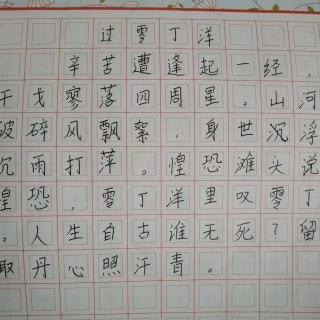 过零丁洋
辛苦遭逢起一经，
干戈寥落四周星。山河
破碎风飘絮，身世沉浮
沉雨打萍。惶恐滩头说
惶恐，零丁洋里叹零丁
。人生自古谁无死？留
取丹心照汗青。